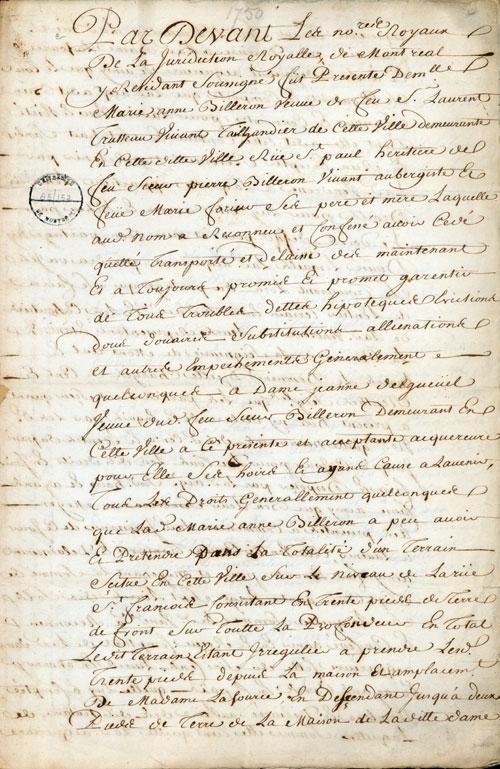 1750
Par Devant Les no.res Royaux
De La Juridiction Royalle de Montreal
y Residant Soussigné fut Presente Dem.lle
Marie anne Billeron Veuve de feu S.r Laurent
Truteau Vivant Taillandier de Cette Ville demeurante
En Cette ditte Ville Rüe S.t paul heritiere de
feu Sieur pierre Billeron Vivant aubergiste Et
feüe Marie Ses pere et mere Laquelle
aud. Nom a Reconnu et Confessé avoir Cedé
quitté Transporté et delaissé des maintenant
Et a Toujours, promis Et promet garentir
de Tous Troubles dettes hipoteques Evictions
Dons douaires Substitutions allienations
et autres Empechements Generalement
quelconques a Dame jeanne
Veuve dud. feu Sieur Billeron Demeurant En
Cette Ville a Ce presente et acceptante acquereure
pour Elle Ses hoirs Et ayans Cause a Lavenir
Tous Les Droits Generallement quelconques
que La Marie anne Billeron a peu avoir
Et Pretendre Dans La Totalité d'un Terrain
Scitué En Cette Ville Sur Le Niveau de La rüe
S.t francois Consistant En Trente pieds de Terre
de front Sur Toutte La Profondeur En Total
Ledit Terrain Etant Irregulier a prendre Lesd.
Trente pieds depuis La maison Et amplacem.
De Madame La source En Descendant Jusqu'a deux
Pieds de Terre de La Maison de La ditte dame